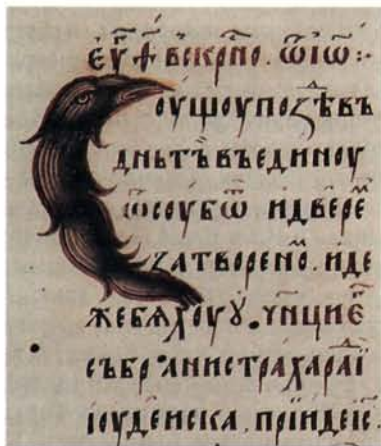 еѵ҃г ѳ҃ въскрⷭ҇но. ѿ іѡ҃:·
Соущоу позⷣѣ въ
дньтъ҆ въединоу
ѿсоубѡ҃ идвереⷨ҇
затвореноⷨ. иде
жебѧхоу ѹ҆. ч҃нцие҆г
събранистрахараⷣи҆
іоудеиска. прїидеіс҃.